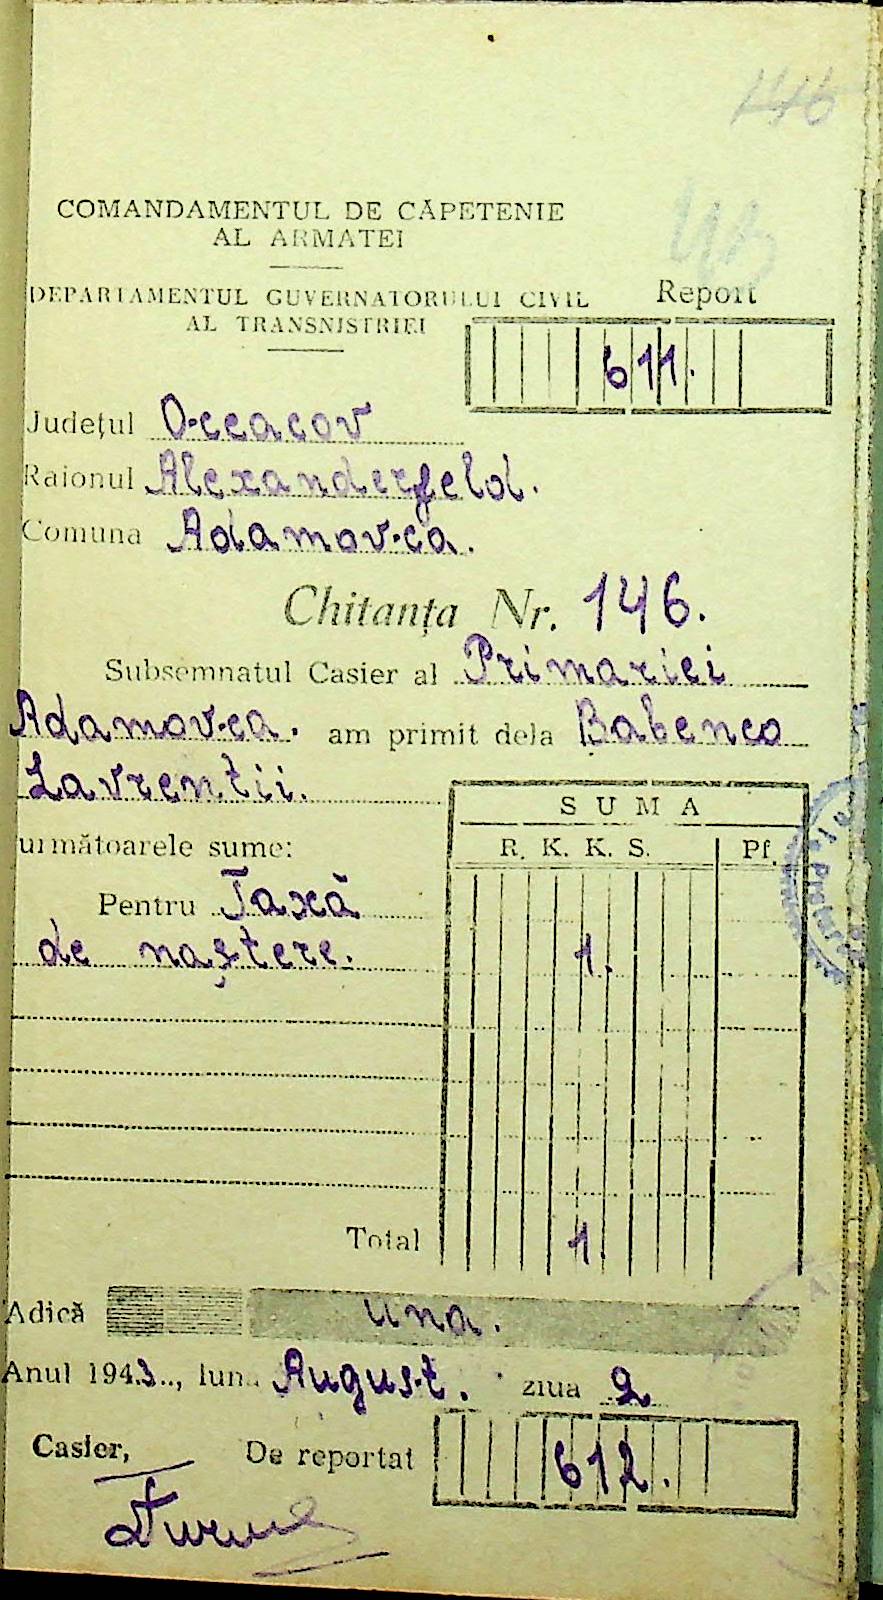 146
COMANDAMENTUL DE CĂPETENIE
AL ARMATEI
DEPARTAMENTUL GUVERNATORULUI CIVIL
AL TRANSNISTRIEI
Report
611.
Județul Oceacov
Raionul Alexanderfeld.
Comuna Adamovca.
Chitanța Nr. 146.
Subsemnatul Casier al Primariei
Adamovca. am primit dela Babenco
Lavrentii.
SUMA
următoarele sume:
R. K. K. S. Pf.
Pentru Taxă
de naștere. 1.
Total 1.
Adică una.
Anul 1943.., luna August. ziua 2
Casier, De reportat 612.